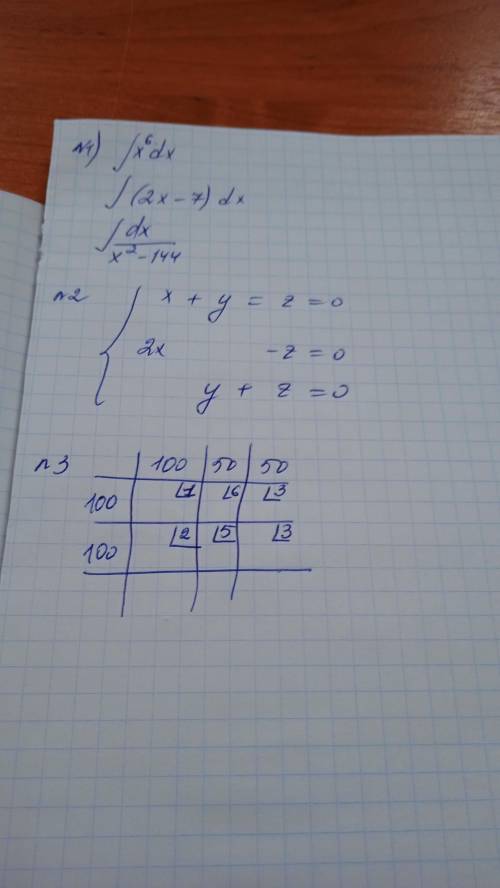 №1) ∫x⁶dx
∫(2x-7)dx
∫dx/(x²-144)
№2 { x + y = z = 0
2x -z = 0
y + z = 0
№3 100 50 50
100 1 6 3
100 2 5 3